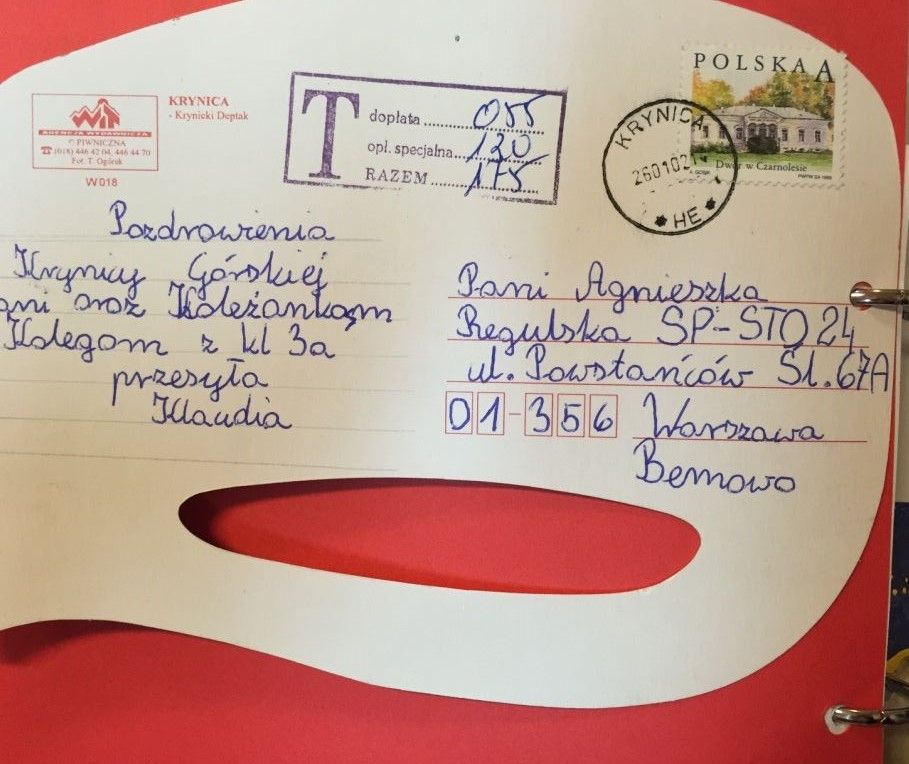 AGENCJA WYDAWNICZA
PIWNICZNA
☎ (018) 446 42 04, 446 44 70
Fot. T. Ogórek
W018
KRYNICA
- Krynicki Deptak
T
dopłata 055
opł. specjalna 120
RAZEM 175
POLSKA A
Dwór w Czarnolesie
KRYNICA
260102
* HE *
Pozdrowienia
Krynicy Górskiej
ani oraz Koleżankom
Kolegom z kl 3a
przesyła
Klaudia
Pani Agnieszka
Regulska SP-STO 24
ul. Powstańców Śl. 67A
01-356 Warszawa
Bemowo